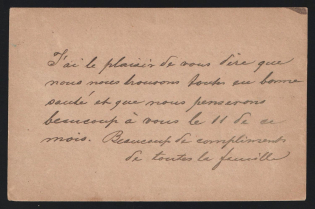 J'ai le plaisir de vous dire que
nous nous trouvons toutes en bonne
santé et que nous penserons
beaucoup à vous le 11 de ce
mois. Beaucoup de compliments
de toutes la famille